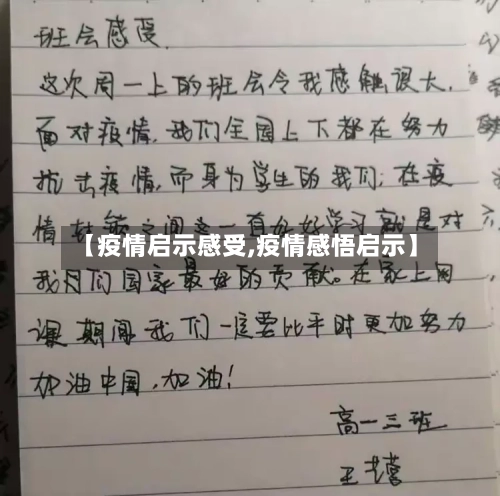 班会感受.
这次周一上的班会令我感触很大.
面对疫情.我们全国上下都在努力
抗击疫情,而身为学生的我们;在疫
情
【疫情启示感受,疫情感悟启示】
我们国家最好的贡献。在家上网
课期间我们一定要比平时更加努力
加油中国,加油!
高一三班